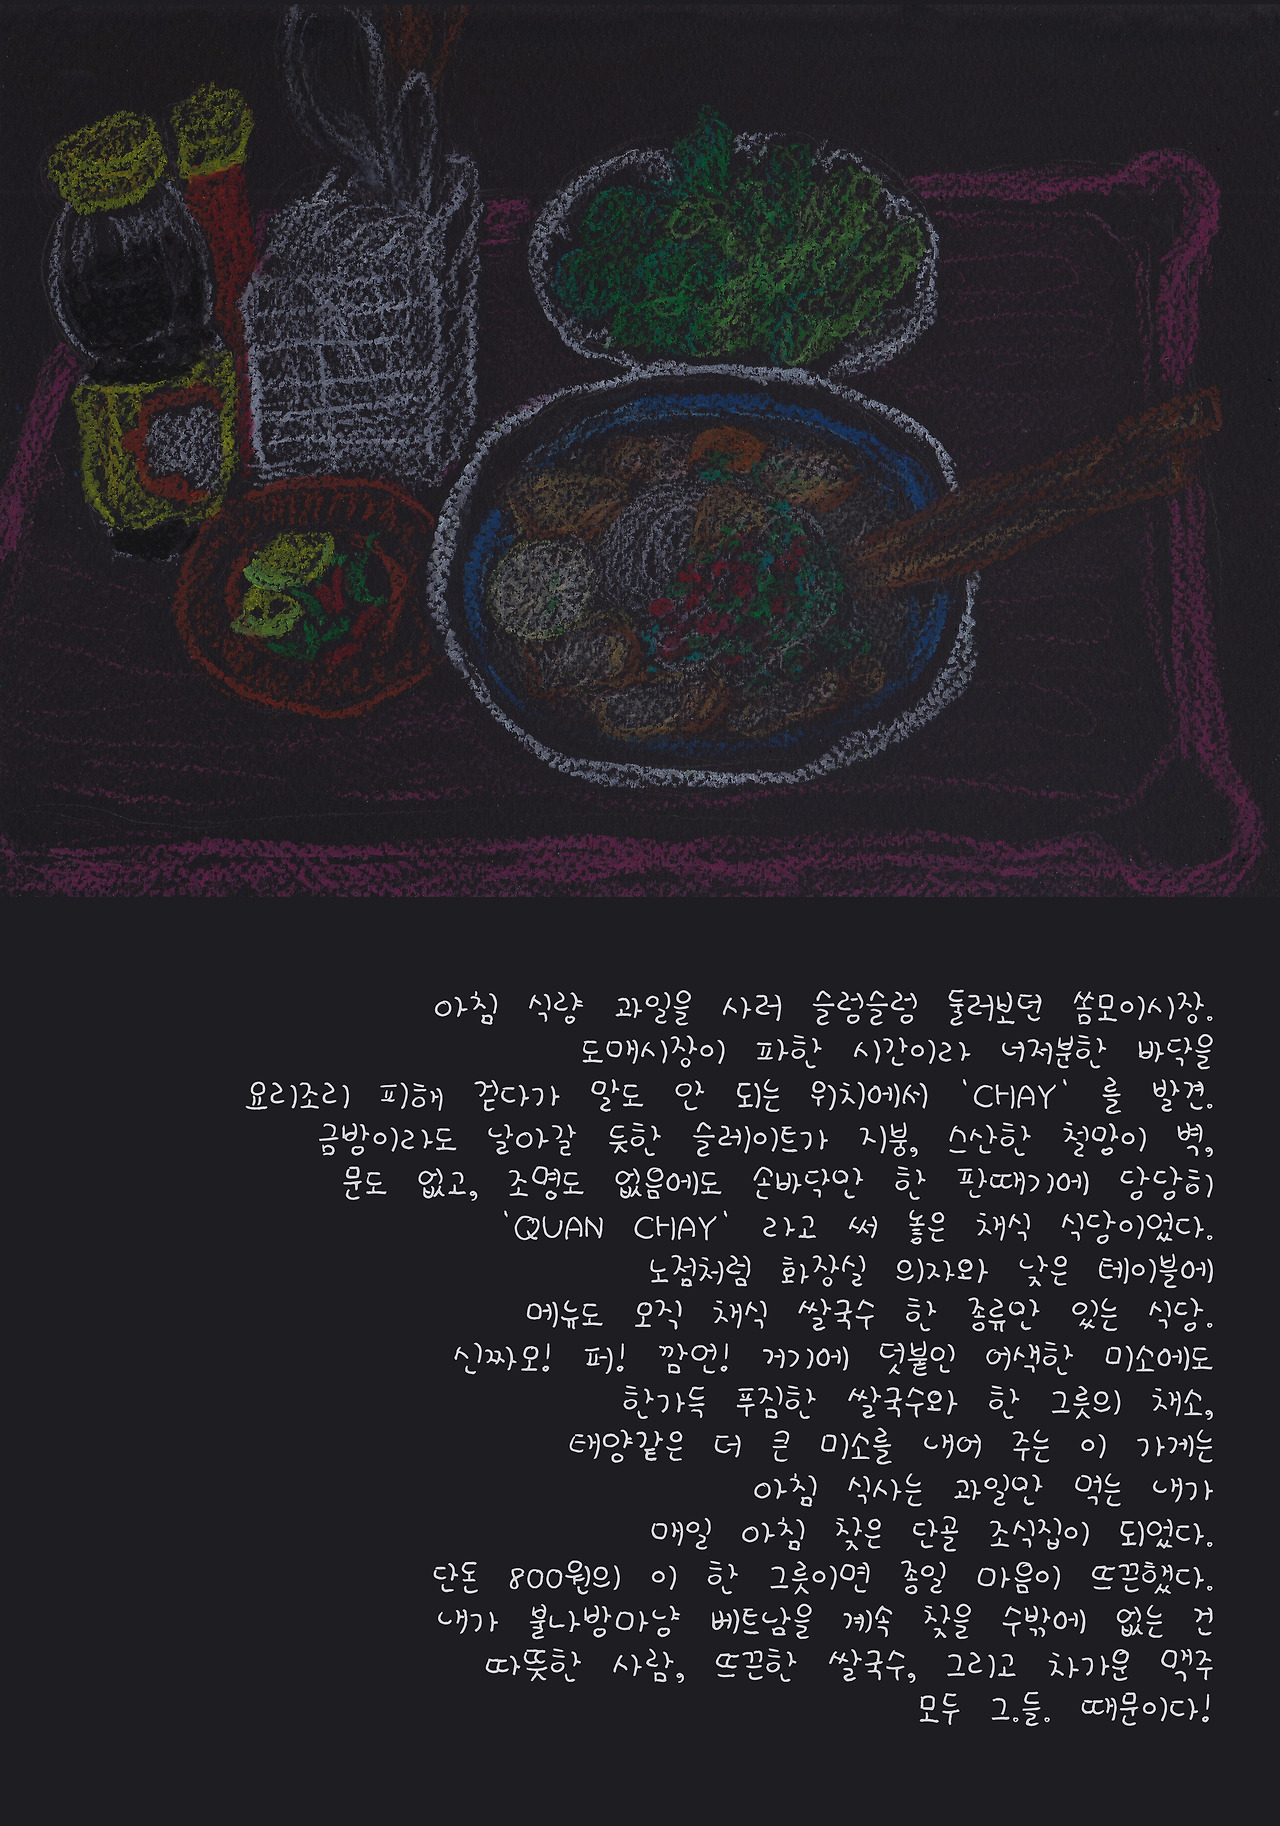 아침 식량 과일을 사러 슬렁슬렁 둘러보던 쏨모이시장.
도매시장이 파한 시간이라 너저분한 바닥을
요리조리 피해 걷다가 말도 안 되는 위치에서 'CHAY' 를 발견.
금방이라도 날아갈 듯한 슬레이트가 지붕, 스산한 철망이 벽,
문도 없고, 조명도 없음에도 손바닥만 한 판때기에 당당히
'QUAN CHAY' 라고 써 놓은 채식 식당이었다.
노점처럼 화장실 의자와 낮은 테이블에
메뉴도 오직 채식 쌀국수 한 종류만 있는 식당.
신짜오! 퍼! 깜언! 거기에 덧붙인 어색한 미소에도
한가득 푸짐한 쌀국수와 한 그릇의 채소,
태양같은 더 큰 미소를 내어 주는 이 가게는
아침 식사는 과일만 먹는 내가
매일 아침 찾은 단골 조식집이 되었다.
단돈 800원의 이 한 그릇이면 종일 마음이 뜨끈했다.
내가 불나방마냥 베트남을 계속 찾을 수밖에 없는 건
따뜻한 사람, 뜨끈한 쌀국수, 그리고 차가운 맥주
모두 그.들. 때문이다!